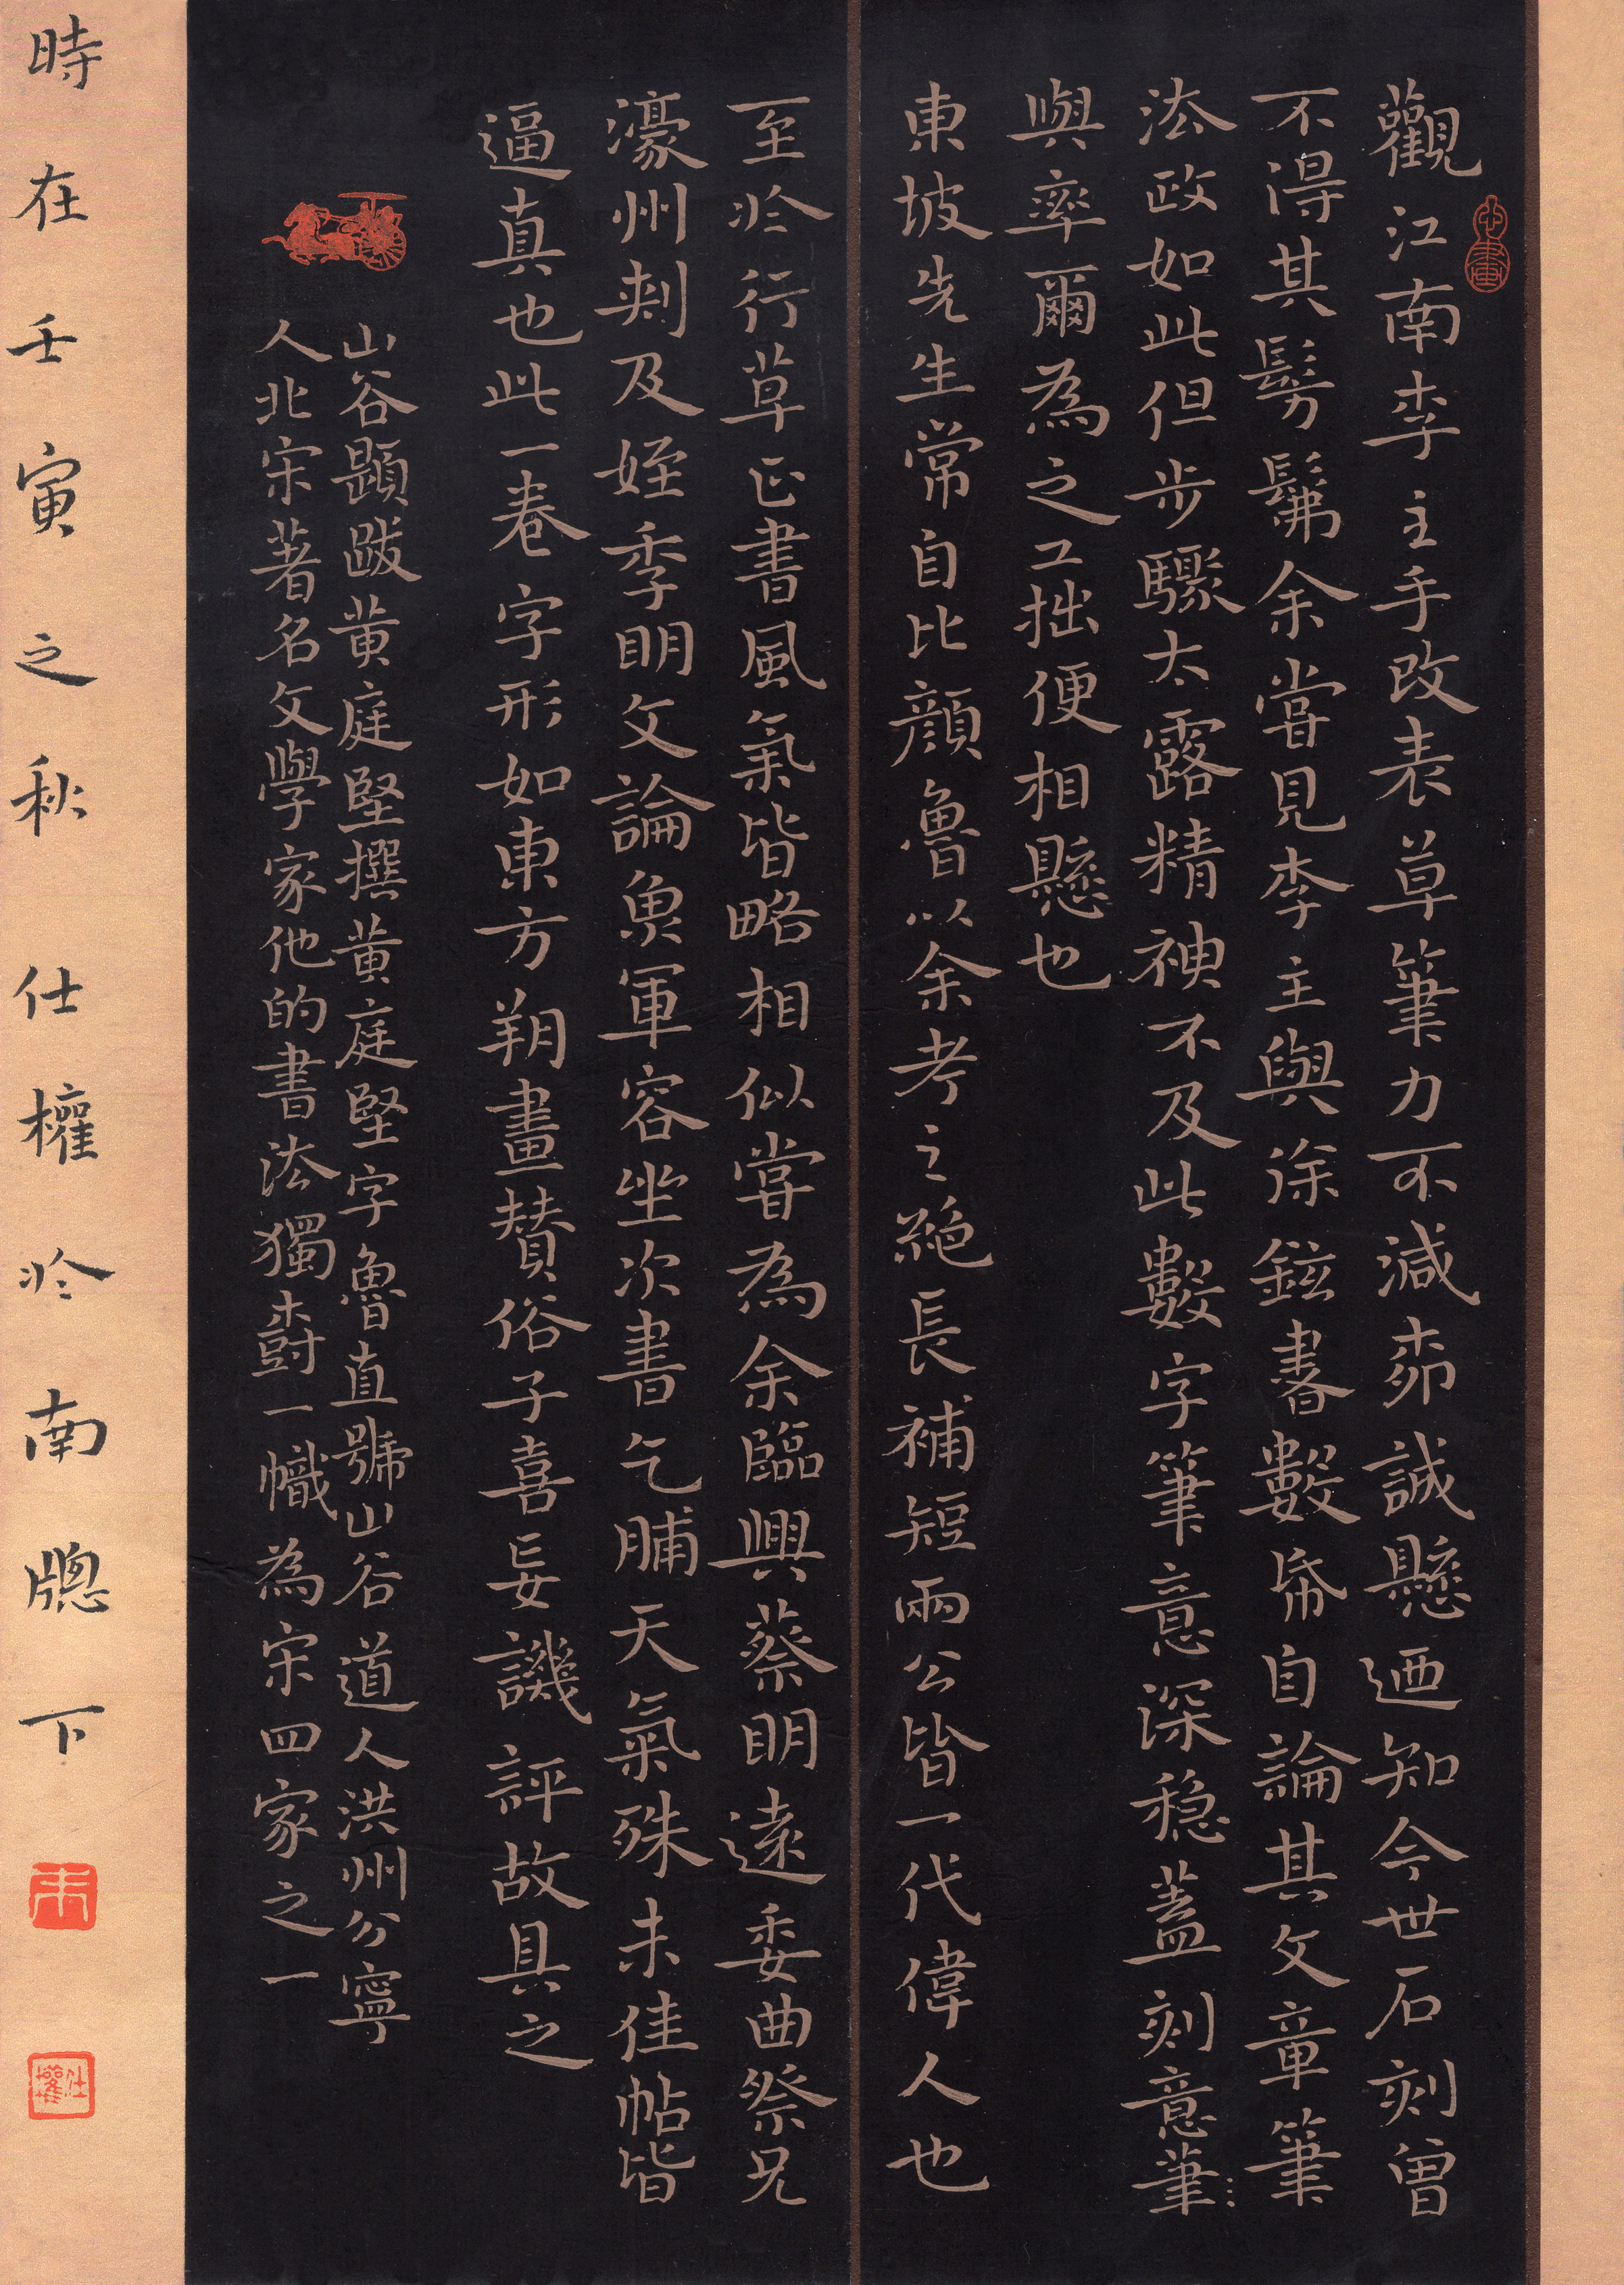 觀江南李主手改表草筆力不減柳誠懸迺知今世石刻曾
不得其髣髴余嘗見李主與徐鉉書數紙自論其文章筆
法政如此但步驟太露精神不及此數字筆意深穩蓋刻意筆
與率爾為之工拙便相懸也
東坡先生常自比顔魯以余考之絕長補短兩公皆一代偉人也
至於行草正書風氣皆略相似嘗為余臨與蔡明遠委曲祭兄
濠州刺及姪季明文論魚軍容坐次書乞脯天氣殊未佳帖皆
逼真也此一卷字形如東方朔畫贊俗子喜妄譏評故具之
山谷題跋黃庭堅撰黃庭堅字魯直號山谷道人洪州分寧
人北宋著名文學家他的書法獨樹一幟為宋四家之一
時在壬寅之秋仕權於南牕下